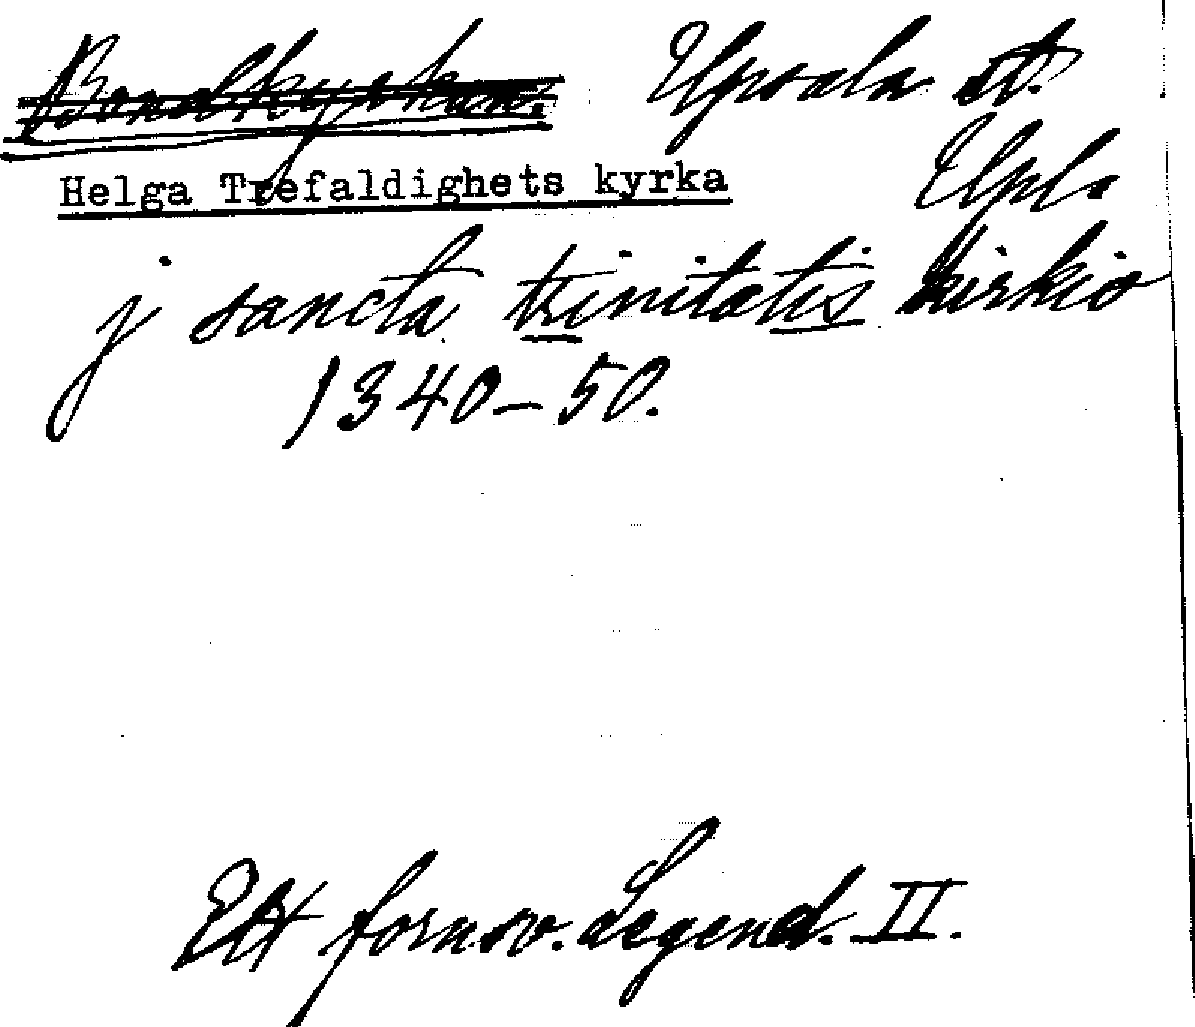 Bondkyrkan. Upsala st.
Helga Trefaldighets kyrka Upl.
j sancta trinitatis kirkio
1340-50.
Ett fornsv. Legend. II.